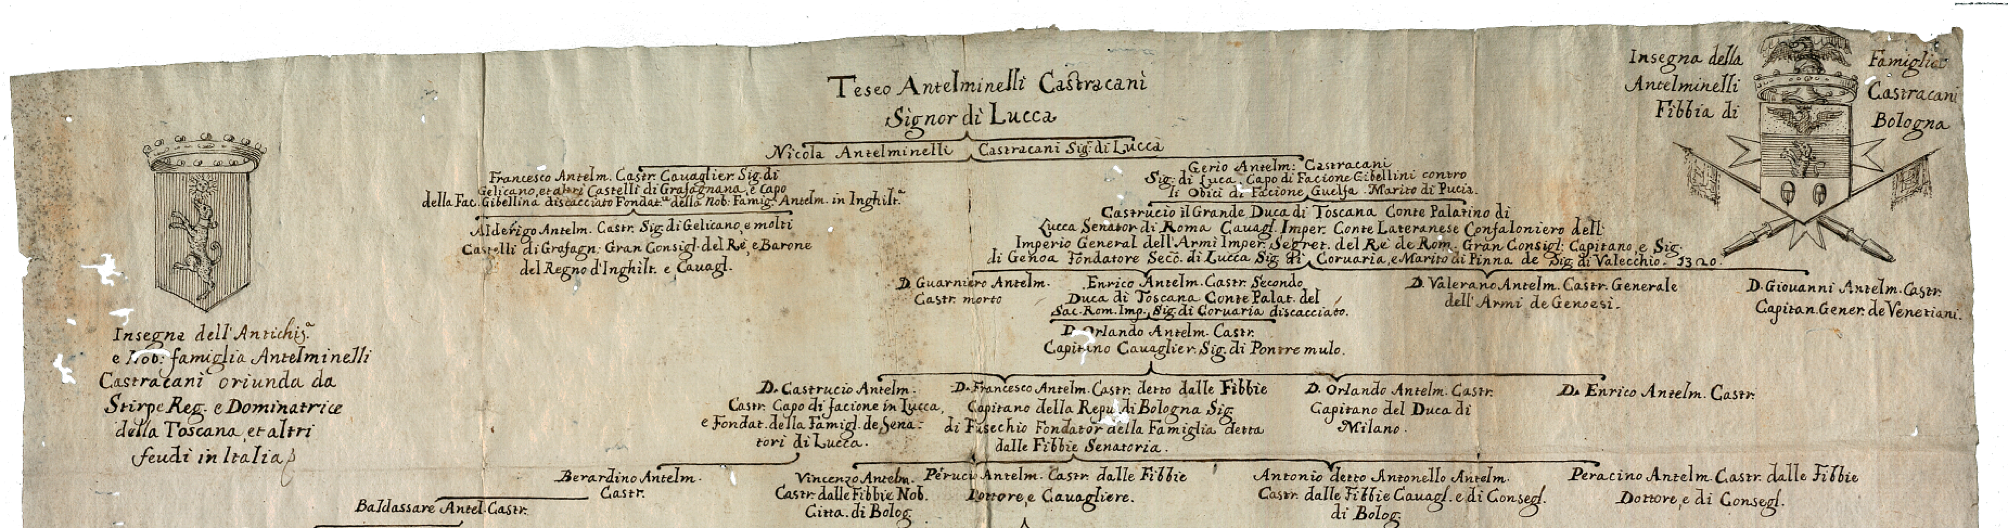 Teseo Antelminelli Castracani
Signor di Lucca
Insegna della Famiglia
Antelminelli Castracani
Fibbia di Bologna
Nicola Antelminelli Castracani Sigr. di Lucca
Francesco Antelm. Castr. Cavaglier. Sig. di
Gelicano, et altri Castelli di Grafagnana, e Capo
della Fac. Gibellina discacciato Fondat. della Nob. Famig. Antelm. in Inghilt.a
Gerio Antelm: Castracani
Sig: di Luca. Capo di Facione Gibellini contro
li Obici di Facione Guelfa. Marito di Pucia.
Alderigo Antelm. Castr. Sig. di Gelicano, e molti
Castelli di Grafagn: Gran Consigl. del Re, e Barone
del Regno d'Inghilt. e Cavagl.
Castrucio il Grande Duca di Toscana Conte Palatino di
Lucca Senator di Roma Cavagl. Imper. Conte Lateranese Confaloniero dell'
Imperio General dell'Armi Imper. Segret. del Re de Rom. Gran Consigl: Capitano, e Sig.
di Genoa Fondatore Secc. di Lucca Sig. di Coruaria, e Marito di Pinna de Sig. di Valecchio. 1320.
D. Guarniero Antelm.
Castr. morto
Enrico Antelm. Castr. Secondo
Duca di Toscana Conte Palat. del
Sac. Rom. Imp. Sig. di Coruaria discacciato.
D. Valerano Antelm. Castr. Generale
dell'Armi de Genoesi.
D. Giovanni Antelm. Castr.
Capitan. Gener. de Venetiani.
D. Orlando Antelm. Castr.
Capitano Cavaglier. Sig. di Pontremulo.
Insegna dell'Antichis.a
e Nob: famiglia Antelminelli
Castracani oriunda da
Stirpe Reg. e Dominatrice
della Toscana, et altri
feudi in Italia
D. Castrucio Antelm.
Castr. Capo di facione in Lucca,
e Fondat. della Famigl. de Sena-
tori di Lucca.
D. Francesco Antelm. Castr. detto dalle Fibbie
Capitano della Repu. di Bologna Sig.
di Fusechio Fondator della Famiglia detta
dalle Fibbie Senatoria.
D. Orlando Antelm. Castr.
Capitano del Duca di
Milano.
D. Enrico Antelm. Castr.
Berardino Antelm.
Castr.
Vincenzo Antelm.
Castr. dalle Fibbie Nob.
Citta. di Bolog.
Perucio Antelm. Castr. dalle Fibbie
Dottore, e Cavagliere.
Antonio detto Antonello Antelm.
Castr. dalle Fibbie Cavagl. e di Consegl.
di Bolog.
Peracino Antelm. Castr. dalle Fibbie
Dottore, e di Consegl.
Baldassare Antel. Castr.